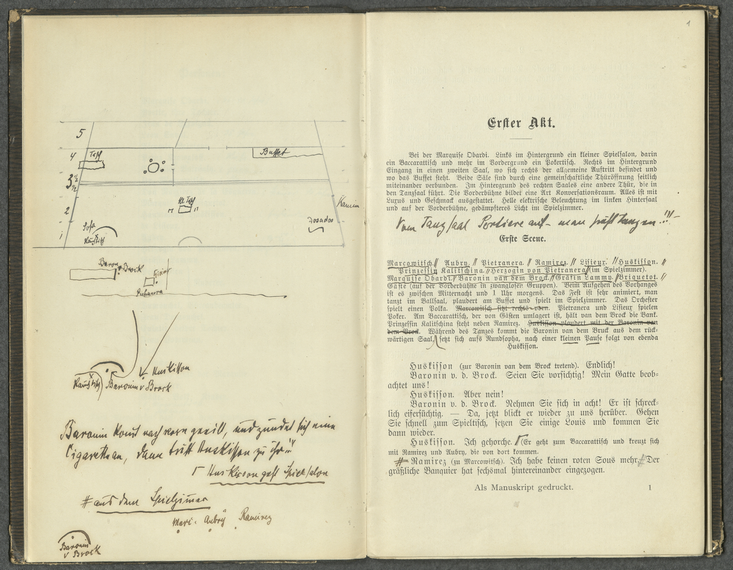 5
4
3 1/2
2
1
Tisch
Buffet
Kl Tisch
Kamin
Baron
Brock
Huskisson
Baronin v Brock
Baronin kommt nach vorn
Cigaretten, dann tritt Huskisson zu ihr!!
Huskisson geht Spielsalon
# aus dem Spielzimmer
Marc. Aubry Ramirez
Baronin
v Brock
1
Erster Akt.
Bei der Marquise Obardi. Links im Hintergrund ein kleiner Spielsalon, darin
ein Baccarattisch und mehr im Vordergrund ein Pokertisch. Rechts im Hintergrund
Eingang in einen zweiten Saal, wo sich rechts der allgemeine Auftritt befindet und
wo das Buffet steht. Beide Säle sind durch eine gemeinschaftliche Thüröffnung seitlich
miteinander verbunden. Im Hintergrund des rechten Saales eine andere Thür, die in
den Tanzsaal führt. Die Vorderbühne bildet eine Art Konversationsraum. Alles ist mit
Luxus und Geschmack ausgestattet. Helle elektrische Beleuchtung im linken Hintersaal
und auf der Vorderbühne, gedämpfteres Licht im Spielzimmer.
Vom Tanzsaal Portiere auf - man sieht tanzen!!!
Erste Scene.
Marcowitsch, Aubry, Pietranera, Ramirez, Lisieur, Huskisson,
Prinzessin Kalitschina, Herzogin von Pietranera (im Spielzimmer).
Marquise Obardi, Baronin van dem Brock, Gräfin Lammy, Briquetot,
Gäste (auf der Vorderbühne in zwanglosen Gruppen). Beim Aufgehen des Vorhanges
ist es zwischen Mitternacht und 1 Uhr morgens. Das Fest ist sehr animiert, man
tanzt im Ballsaal, plaudert am Buffet und spielt im Spielzimmer. Das Orchester
spielt einen Polka. Marcowitsch sitzt rechts vorn. Pietranera und Lisieur spielen
Poker. Am Baccarattisch, der von Gästen umlagert ist, hält van dem Brock die Bank.
Prinzessin Kalitschina steht neben Ramirez. Huskisson plaudert mit der Baronin van
dem Brock. Während des Tanzes kommt die Baronin van dem Bruck aus dem rück-
wärtigen Saal, setzt sich aufs Rundsopha, nach einer kleinen Pause folgt von ebenda
Huskisson.
Huskisson (zur Baronin van dem Brock tretend). Endlich!
Baronin v. d. Brock. Seien Sie vorsichtig! Mein Gatte beob-
achtet uns!
Huskisson. Aber nein!
Baronin v. d. Brock. Nehmen Sie sich in acht! Er ist schreck-
lich eifersüchtig. — Da, jetzt blickt er wieder zu uns herüber. Gehen
Sie schnell zum Spieltisch, setzen Sie einige Louis und kommen Sie
dann wieder.
Huskisson. Ich gehorche. (Er geht zum Baccarattisch und kreuzt sich
mit Ramirez und Aubry, die von dort kommen.
# Ramirez (zu Marcowitsch). Ich habe keinen roten Sous mehr. Der
gräßliche Banquier hat sechsmal hintereinander eingezogen.
Als Manuskript gedruckt.
1